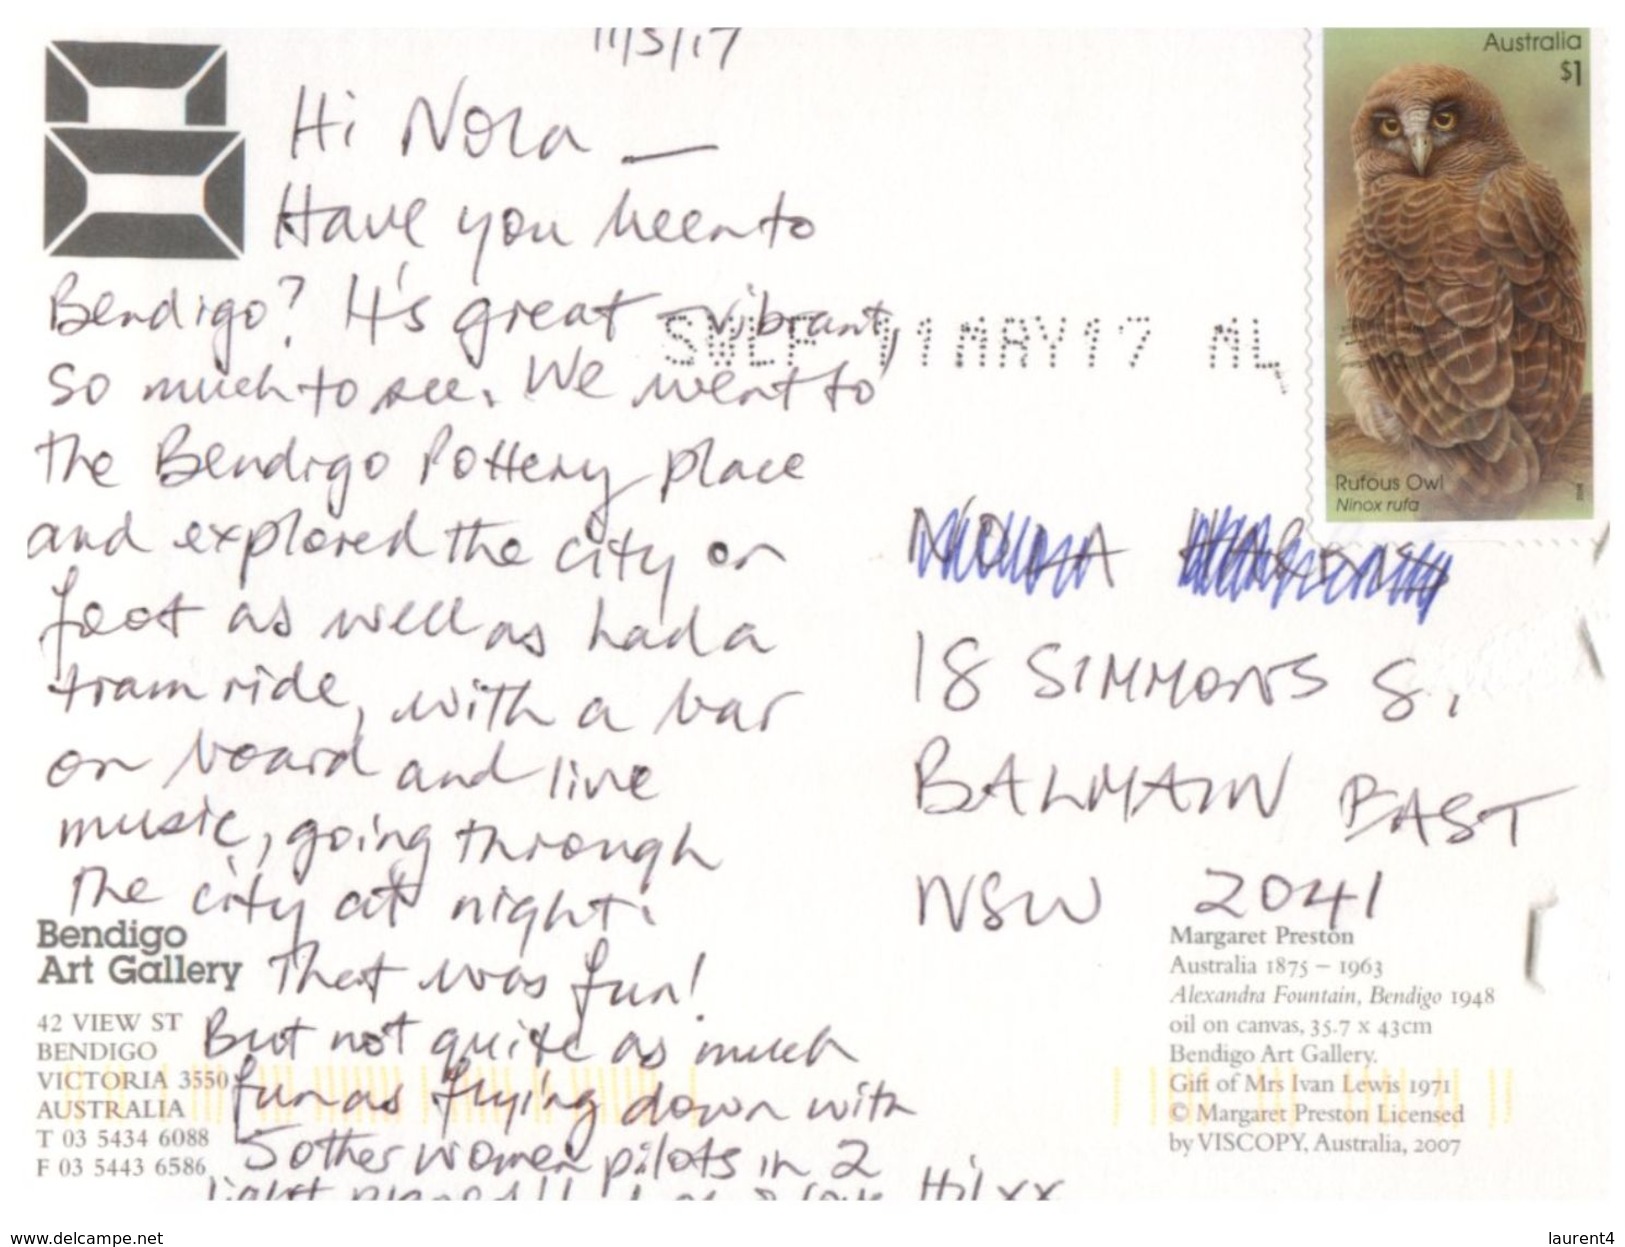 11/5/17
Hi Nora —
Have you been to
Bendigo? It's great – vibrant,
so much to see. We went to
the Bendigo Pottery place
and explored the city on
foot as well as had a
tram ride, with a bar
on board and live
music, going through
the city at night.
That was fun!
But not quite as much
fun as flying down with
5 other women pilots in 2
light planes!! love Hil xx
Australia
$1
Rufous Owl
Ninox rufa
11MAY17 ML
18 SIMMONS S.,
BALMAIN EAST
NSW 2041
Bendigo
Art Gallery
42 VIEW ST
BENDIGO
VICTORIA 3550
AUSTRALIA
T 03 5434 6088
F 03 5443 6586
Margaret Preston
Australia 1875 – 1963
Alexandra Fountain, Bendigo 1948
oil on canvas, 35.7 x 43cm
Bendigo Art Gallery.
Gift of Mrs Ivan Lewis 1971
© Margaret Preston Licensed
by VISCOPY, Australia, 2007
www.delcampe.net
laurent4